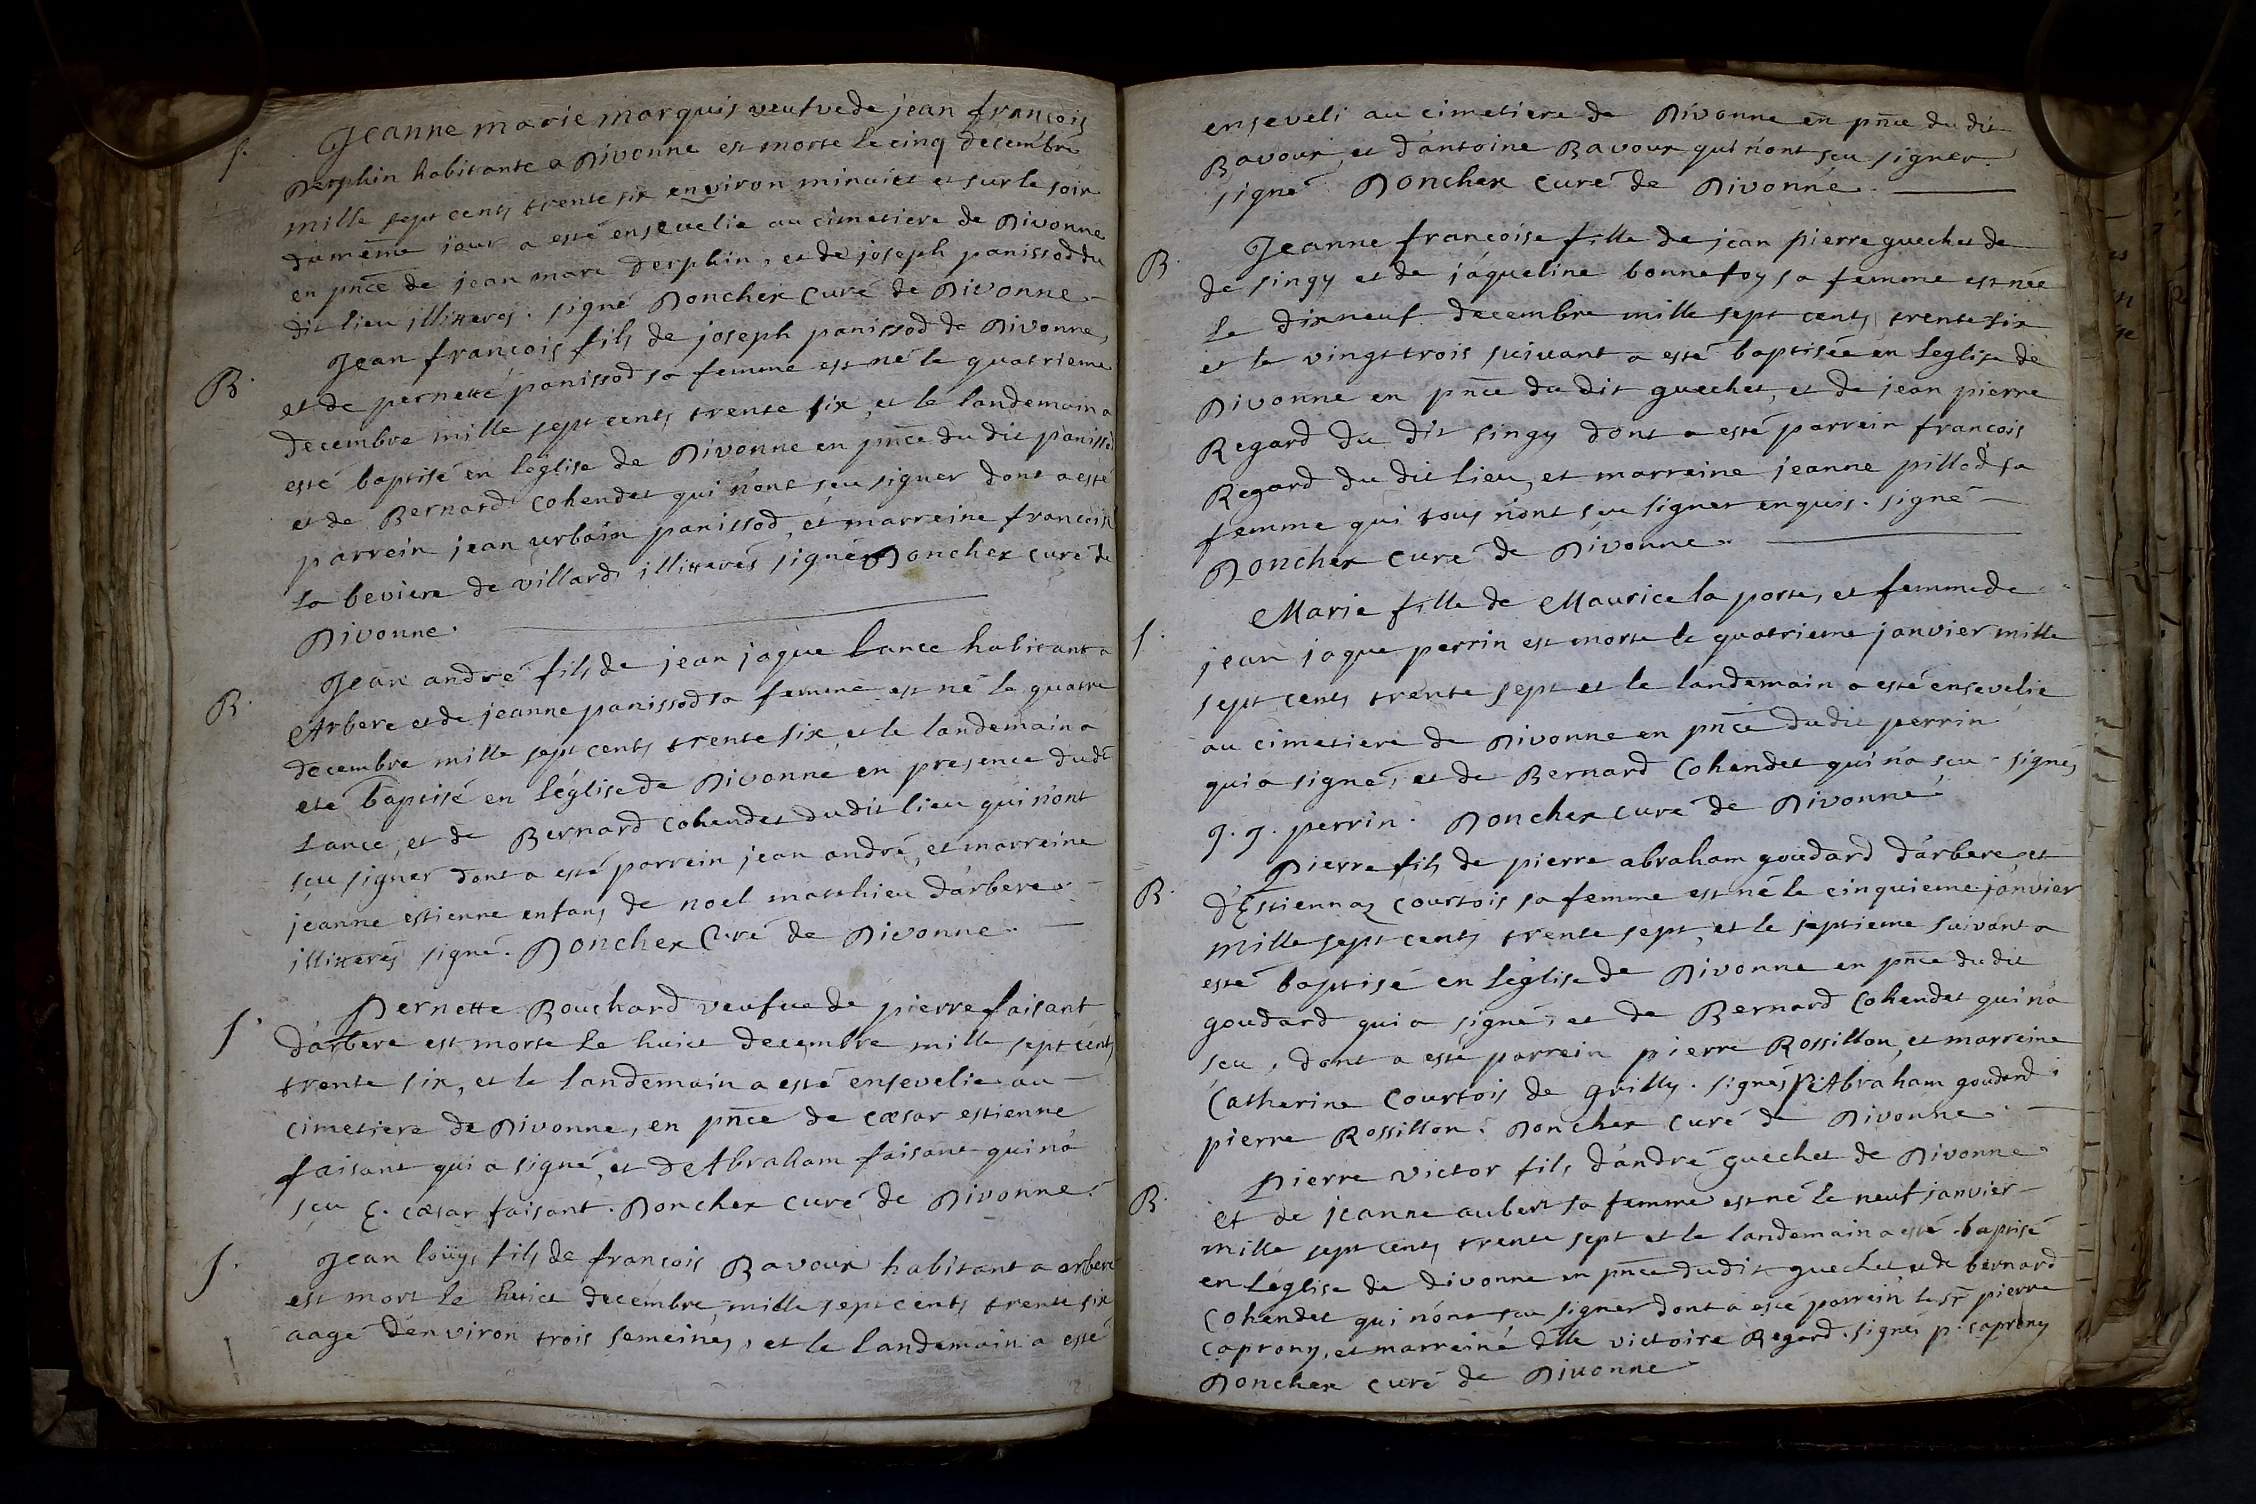 S. Jeanne marie marquis veufve de jean françois
Derphin habitante a Divonne est morte le cinq decembre
mille sept cents trente six environ minuict et sur le soir
du même jour a esté ensevelie au cimetiere de Divonne
en pn̄ce de jean marc Derphin, et de joseph panissod du
dit lieu illitterés. signé Doncher Curé de Divonne
B. Jean françois fils de joseph panissod de Divonne,
et de pernette panissod sa femme est né le quatrieme
decembre mille sept cents trente six, et le landemain a
esté baptisé en l'église de Divonne en pn̄ce du dit panissod
et de Bernard Cohendet qui n'ont sçu signer dont a esté
parrein jean urbain panissod, et marreine françoise
la beviere de villard illitterés signé Doncher curé de
Divonne.
B. Jean andré fils de jean jaque Lance habitant a
Arbere et de jeanne panissod sa femme est né le quatre
decembre mille sept cents trente six, et le landemain a
eté baptisé en l'église de Divonne en presence dudt
Lance, et de Bernard Cohendet du dit lieu qui n'ont
sçu signer dont a esté parrein jean andré, et marreine
jeanne estienne enfans de noel matthieu d'arbere
illitterés signé. Doncher Curé de Divonne.
S. Pernette Bouchard veufue de pierre faisant
d'arbere est morte le huict decembre mille sept cents
trente six, et le landemain a esté ensevelie au
cimetiere de Divonne, en pn̄ce de cæsar estienne
faisant qui a signé, et d'Abraham faisant qui n'a
sçu E. cæsar faisant. Doncher curé de Divonne.
S. Jean loüys fils de françois Bavoux habitant a arbere
est mort le huict decembre mille sept cents trente six
aagé d'environ trois semeines, et le landemain a esté
enseveli au cimetiere de Divonne en pn̄ce du dit
Bavoux, et d'antoine Bavoux qui n'ont sçu signer.
signé Doncher curé de Divonne.
B. Jeanne françoise fille de jean pierre guechet de
de singy et de jáqueline bonnefoy sa femme est née
le dixneuf decembre mille sept cents trente six
et le vingt trois suivant a esté baptisée en l'eglise de
Divonne en pn̄ce du dit guechet, et de jean pierre
Regard du dit singy dont a esté parrein françois
Regard du dit lieu, et marreine jeanne pillod sa
femme qui tous n'ont sçu signer enquis. signé
Doncher curé de Divonne.
S. Marie fille de Maurice la porte, et femme de
jean jaque perrin est morte le quatrieme janvier mille
sept cents trente sept et le landemain a esté ensevelie
au cimetiere de Divonne en pn̄ce du dit perrin
qui a signé, et de Bernard Cohendet qui n'a sçu. signés
J. J. perrin. Doncher curé de Divonne.
B. Pierre fils de pierre abraham goudard d'arbere et
d'Estiennaz courtois sa femme est né le cinquieme janvier
mille sept cents trente sept, et le septieme suivant a
esté baptisé en l'église de Divonne en pn̄ce du dit
goudard qui a signé, et de Bernard Cohendet qui n'a
sçu, dont a esté parrein pierre Rossillon, et marreine
Catherine Courtois de grilly. signés P. Abraham goudard
pierre Rossillon. Doncher curé de Divonne.
B. Pierre victor fils d'andré guechet de Divonne
et de jeanne aubert sa femme est né le neuf janvier
mille sept cents trente sept et le landemain a esté baptisé
en l'église de divonne en pn̄ce du dit guechet et de bernard
Cohendet qui n'ont sçu signer dont a esté parrein le sr pierre
caprony, et marreine dlle victoire Regard. signés p. caprony
Doncher curé de Divonne